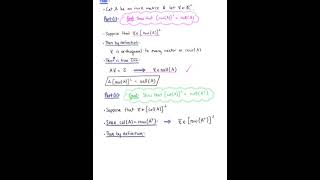 • Let A be an mxn matrix & let x ∈ ℝⁿ.
Part (i): Goal: Show that [row(A)]^⊥ = null(A)
• Suppose that x ∈ [row(A)]^⊥
• Then by definition:
x is orthogonal to every vector in row(A)
• This is true IFF:
Ax = 0 ⟺ x ∈ null(A)
∴ [row(A)]^⊥ = null(A)
Part (ii): Goal: Show that [col(A)]^⊥ = null(Aᵀ)
• Suppose that x ∈ [col(A)]^⊥
• col(A) = row(Aᵀ) ⟹ x ∈ [row(Aᵀ)]^⊥
• Then by definition: